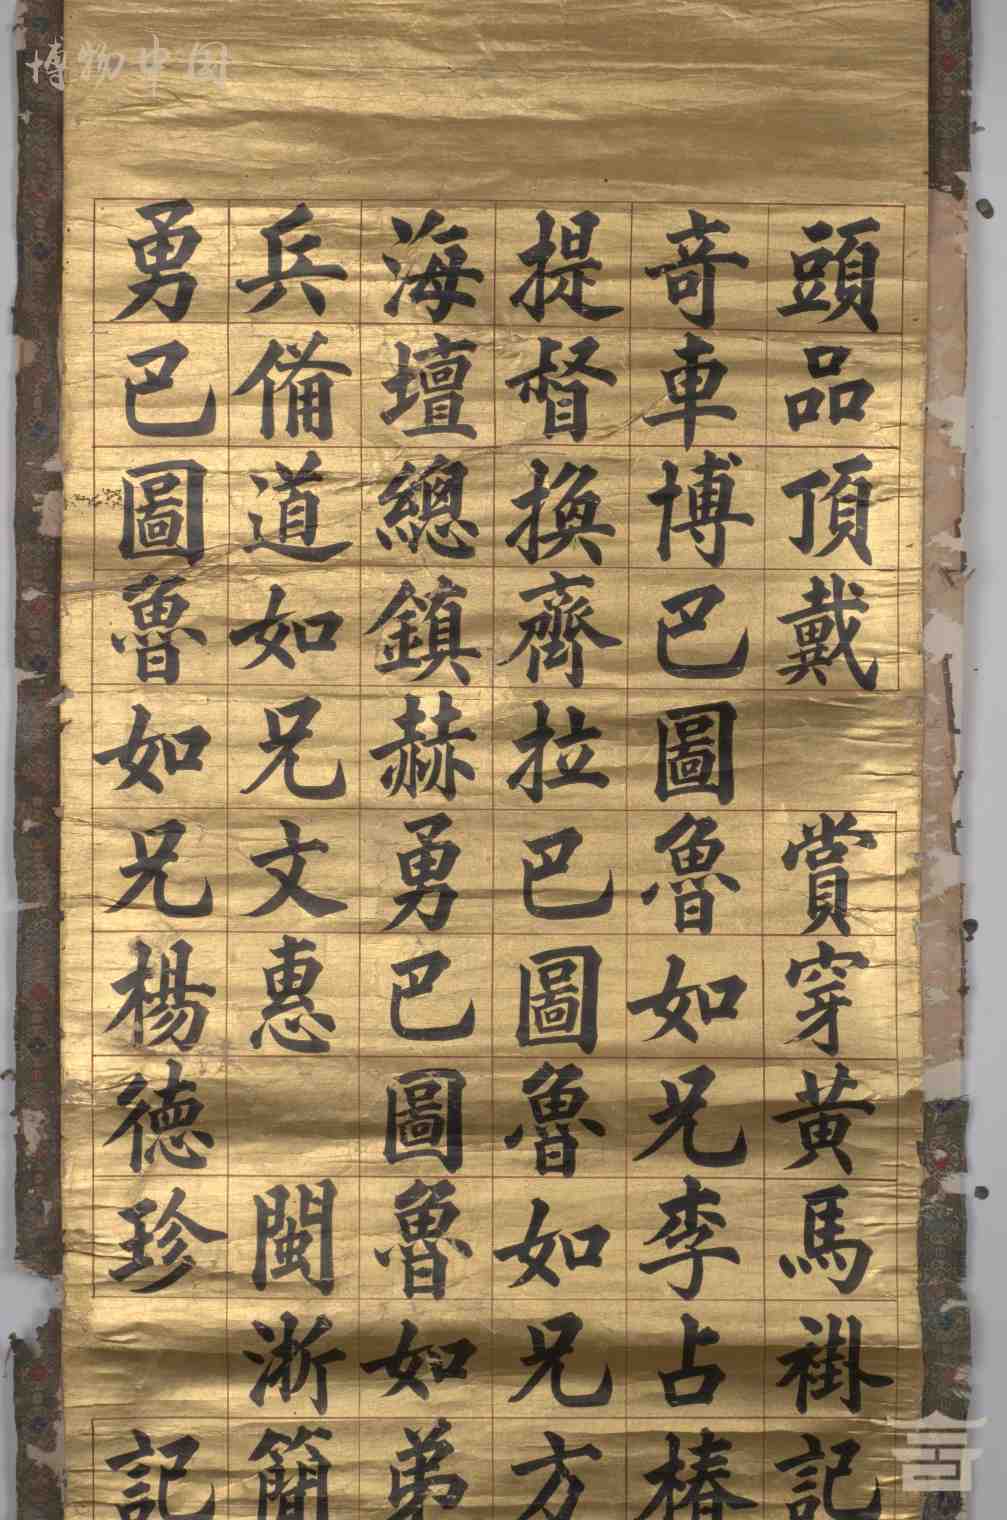 博物中国
頭品頂戴 賞穿黃馬褂記
奇車博巴圖魯如兄李占椿
提督換齊拉巴圖魯如兄方
海壇總鎮赫勇巴圖魯如弟
兵備道如兄文惠 閩浙簡
勇巴圖魯如兄楊德珍 記